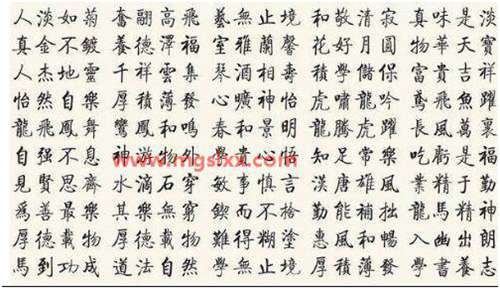 人淡如菊 奮翮高飛 藝無止境 和敬清寂 真味是淡
真金不鍍 養德澤福 室雅蘭馨 花好月圓 物華天寶
人杰地靈 千祥雲集 琴相壽 積學儲 富貴吉祥
怡然自樂 厚積薄發 曠神怡 虎嘯龍吟 鳶飛魚躍
龍飛鳳舞 鸞鳳和鳴 春和景明 龍騰虎躍 長風萬裏
自强不息 神游物外 學貴心悟 知足常樂 吃虧是福
www.mgslxx.com
見賢思齊 水滴石穿 敏事慎言 漢唐雄風 業精于勤
爲善最樂 其樂無窮 鍥而不捨 勤能補拙 龍馬精神
厚德載物 厚德載物 難得糊塗 惠風和暢 入幽出朗
馬到功成 道法自然 學無止境 厚積薄發 學書養志